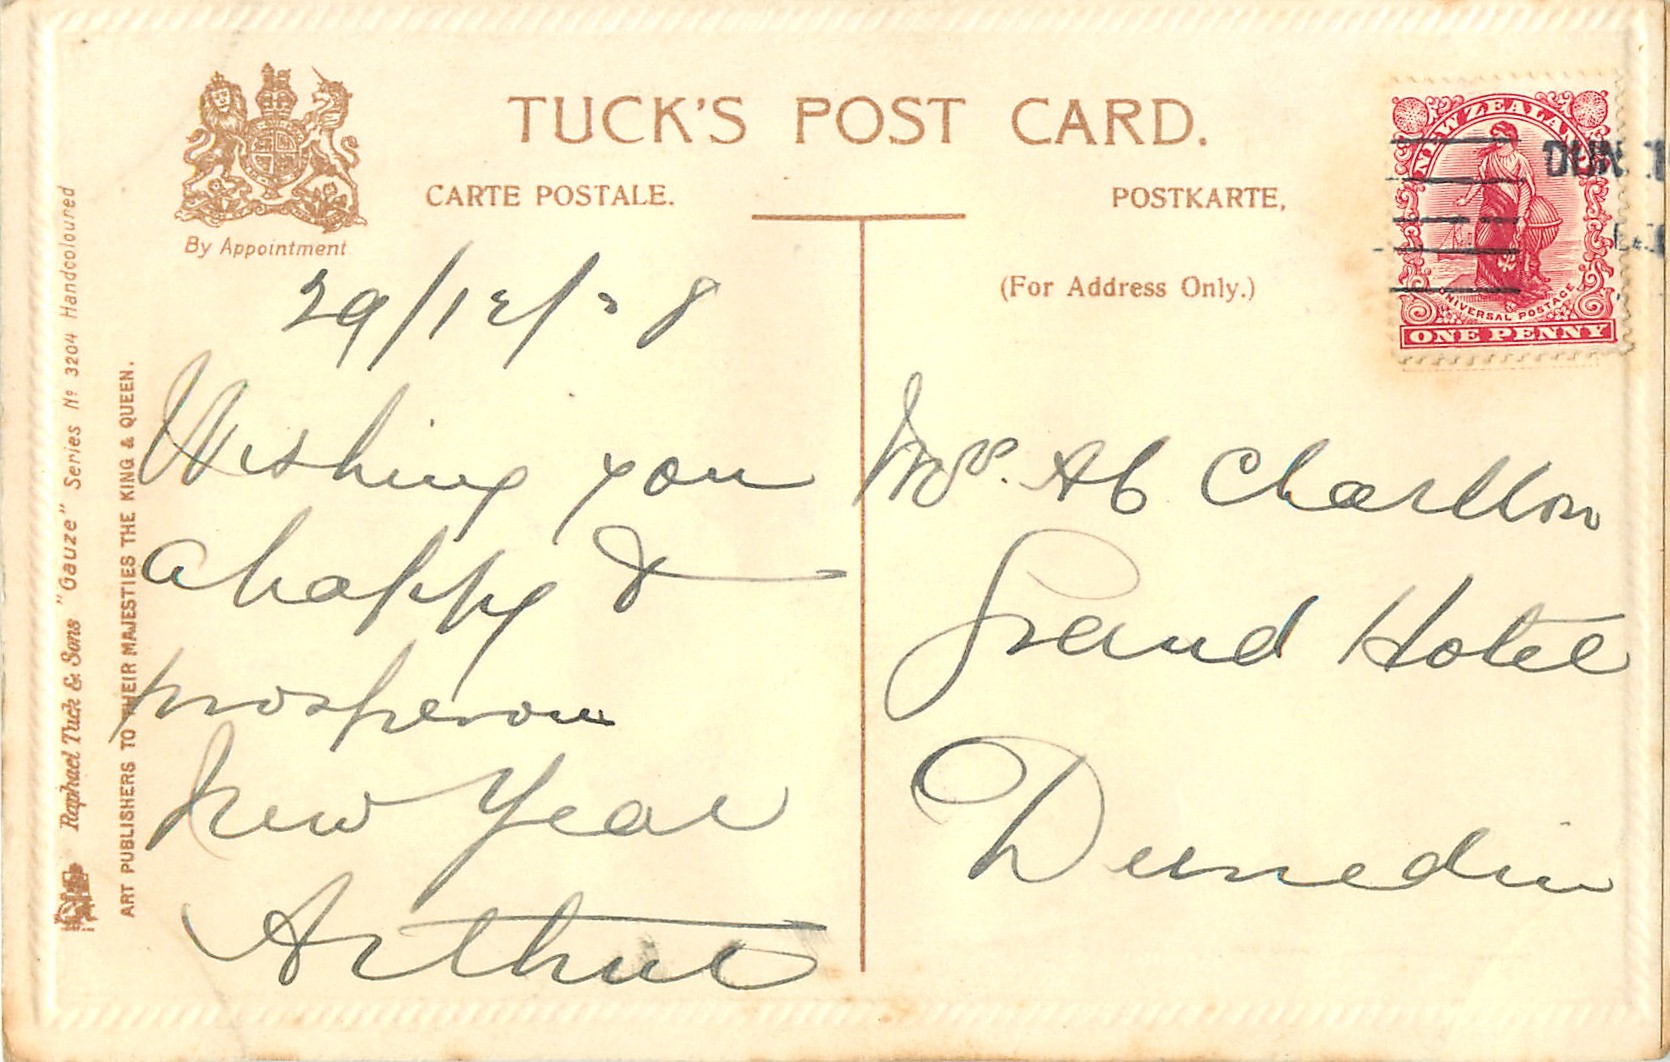 TUCK'S POST CARD.
CARTE POSTALE.
POSTKARTE,
By Appointment
(For Address Only.)
NEW ZEALAND
UNIVERSAL POSTAGE
ONE PENNY
DUN
Raphael Tuck & Sons "Gauze" Series Nº 3204 Handcoloured
ART PUBLISHERS TO THEIR MAJESTIES THE KING & QUEEN.
29/12/08
Wishing you
a happy &
prosperous
New Year
Arthur
Charlton
Grand Hotel
Dunedin